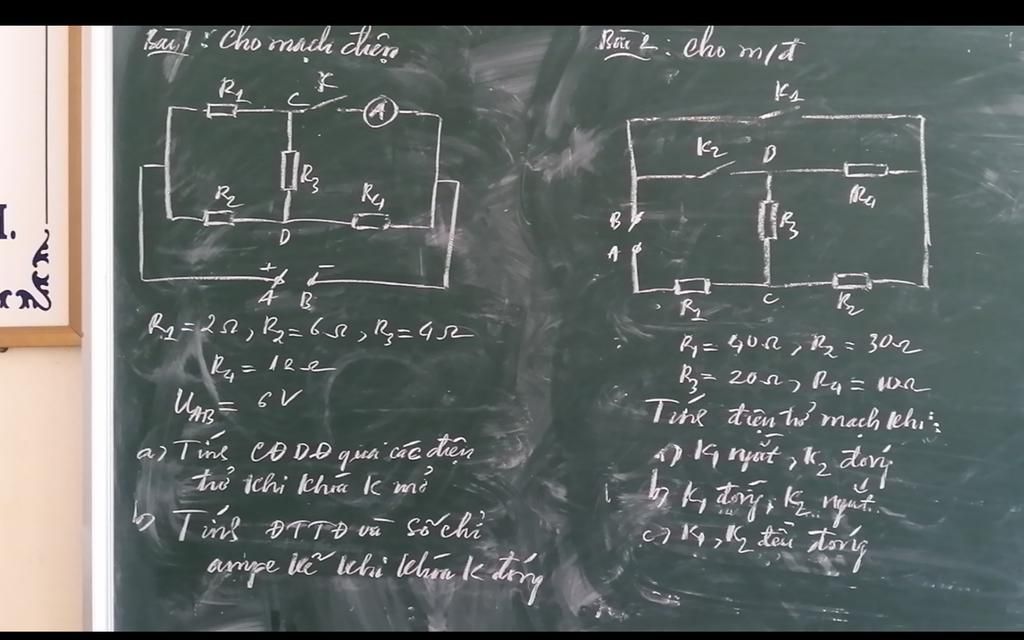 Bài 1 : Cho mạch điện
R1
C
K
A
R3
R2
D
R4
+
-
A
B
R1 = 2Ω, R2 = 6Ω, R3 = 4Ω
R4 = 12Ω
UAB = 6V
a) Tính CĐDĐ qua các điện
trở khi khóa K mở
b) Tính ĐTTĐ và số chỉ
ampe kế khi khóa K đóng
Bài 2 : Cho m/đ
K1
K2
D
R4
B
R3
A
R1
C
R2
R1 = 40Ω, R2 = 30Ω
R3 = 20Ω, R4 = 10Ω
Tính điện trở mạch khi:
a) K1 ngắt, K2 đóng
b) K1 đóng, K2 ngắt
c) K1, K2 đều đóng